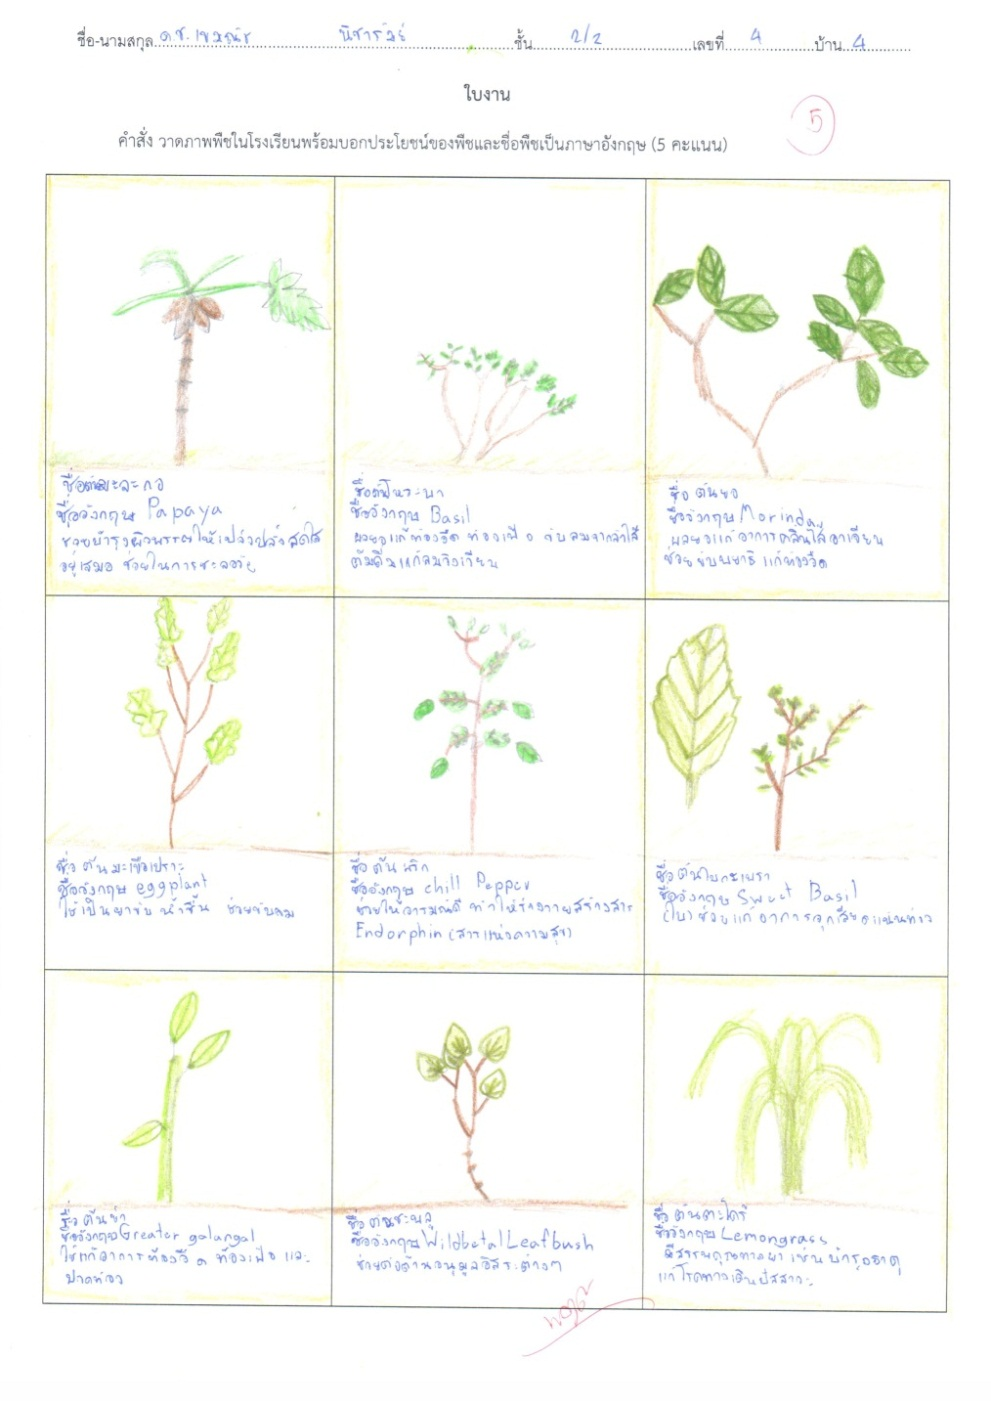 ชื่อ-นามสกุล ด.ช. ชั้น 2/2 เลขที่ 4 บ้าน 4
ใบงาน
5
คำสั่ง วาดภาพพืชในโรงเรียนพร้อมบอกประโยชน์ของพืชและชื่อพืชเป็นภาษาอังกฤษ (5 คะแนน)
ชื่อต้นมะละกอ
ชื่ออังกฤษ Papaya
ช่วยบำรุงผิวพรรณให้เปล่งปลั่งสดใส
อยู่เสมอ ช่วยในการชะลอวัย
ชื่อต้นโหระพา
ชื่ออังกฤษ Basil
แก้ท้องอืด ท้องเฟ้อ ขับลมจากลำไส้
ต้มดื่มแก้ลมวิงเวียน
ชื่อ ต้นยอ
ชื่ออังกฤษ Morinda
ผลยอแก้อาการคลื่นไส้อาเจียน
ช่วยขับพยาธิ แก้ท้องอืด
ชื่อ ต้นมะเขือเปราะ
ชื่ออังกฤษ eggplant
ใช้เป็นยาขับ น้ำชื้น ช่วยขับลม
ชื่อ ต้นพริก
ชื่ออังกฤษ chill Pepper
ช่วยให้อารมณ์ดี ทำให้ร่างกายสร้างสาร
Endorphin (สารแห่งความสุข)
ชื่อ ต้นใบกะเพรา
ชื่ออังกฤษ Sweet Basil
(ใบ) ช่วยแก้อาการจุกเสียดแน่นท้อง
ชื่อ ต้นข่า
ชื่ออังกฤษ Greater galangal
ใช้แก้อาการท้องอืด ท้องเฟ้อ และ
ปวดท้อง
ชื่อ ต้นชะพลู
ชื่ออังกฤษ Wildbetal Leafbush
ช่วยต่อต้านอนุมูลอิสระต่างๆ
ชื่อ ต้นตะไคร้
ชื่ออังกฤษ Lemongrass
มีสรรพคุณทางยา เช่น บำรุงธาตุ
แก้โรคทางเดินปัสสาวะ